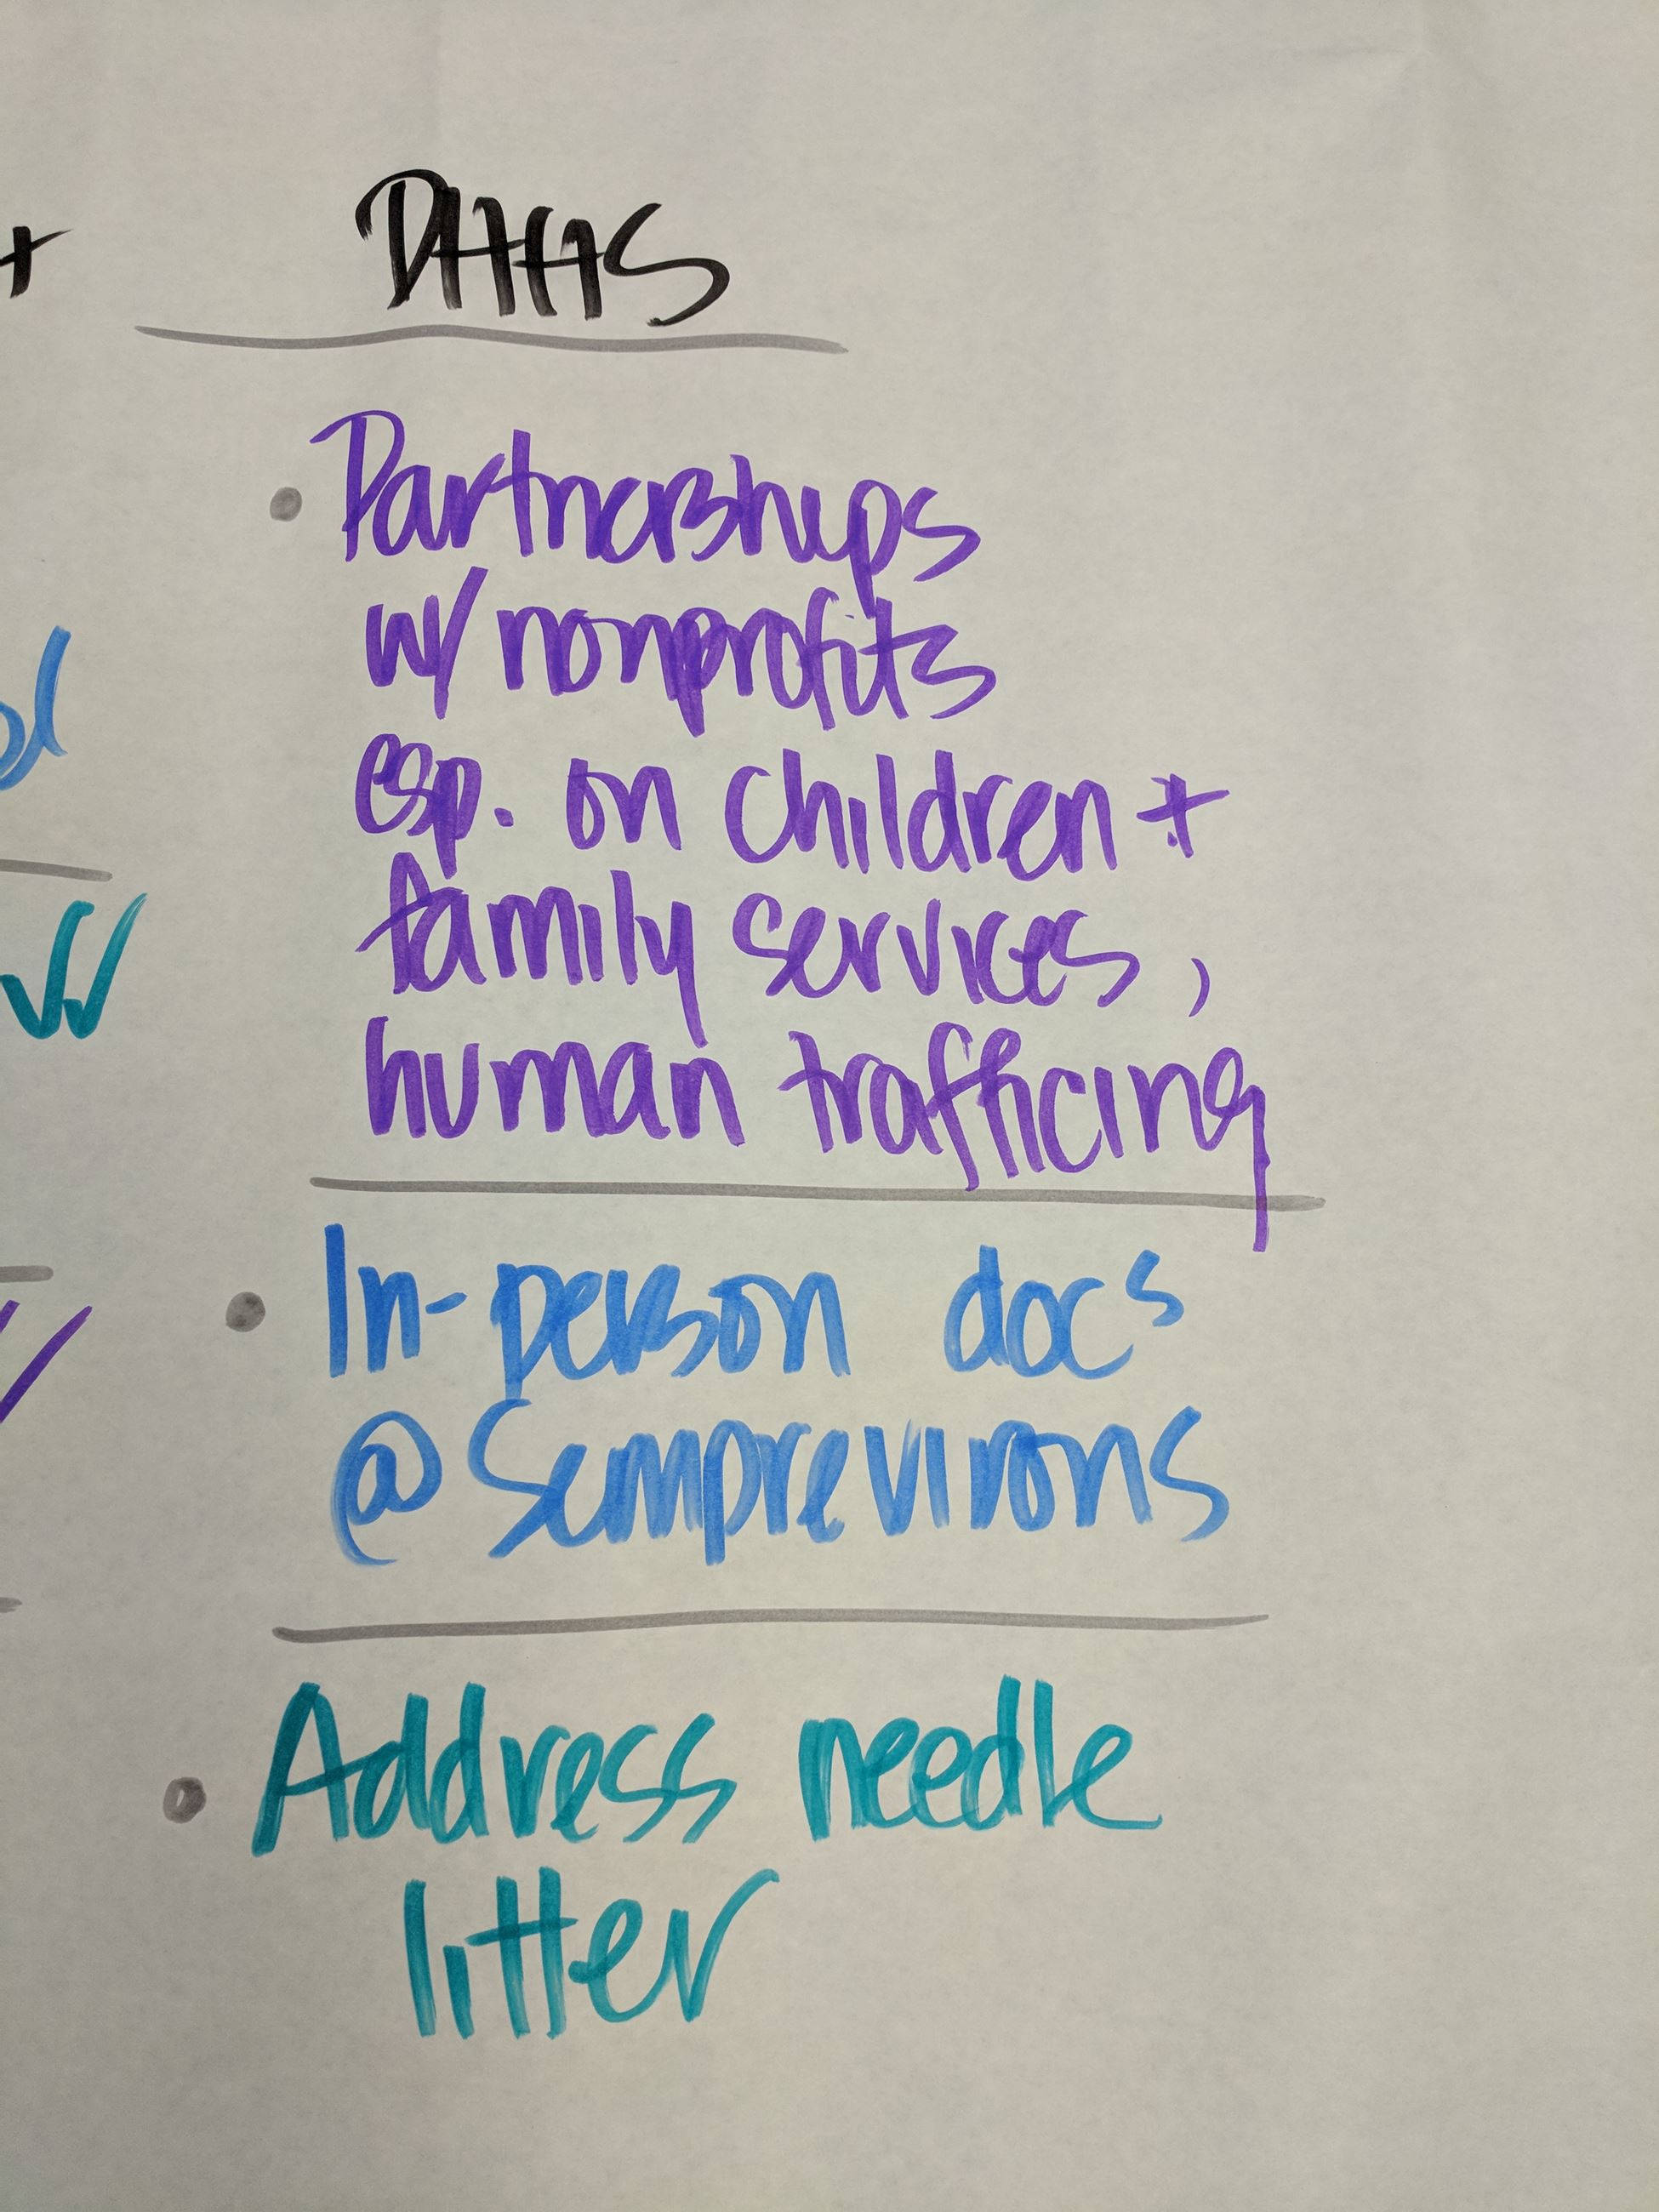 DHHS
• Partnerships
w/ nonprofits
esp. on children +
family services,
human trafficing
• In-person docs
@ Semprevirons
• Address needle
litter